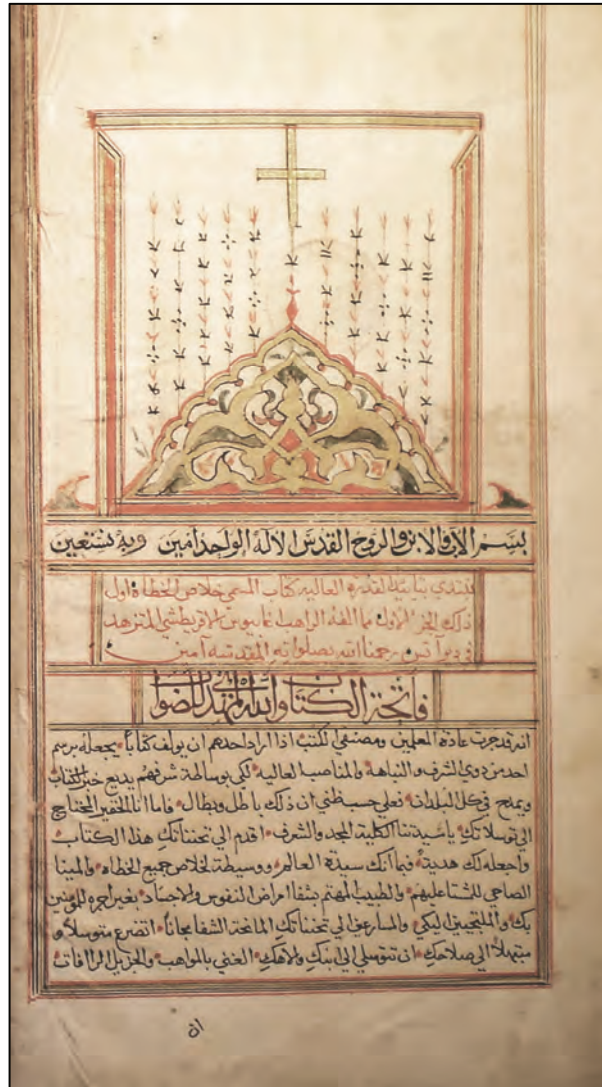 بسم الاب والابن والروح القدس الاله الواحد امين وبه نستعين
نبتدي بتاييد القدره العاليه كتاب المسمى خلاص الخطاة اول
ذلك الجز الاول مما الفه الراهب اغابيوس الاقريطشي المتزهد
في ديرآثرس رحمنا الله بصلواته المقدسه آمين
فاتحة الكتاب والله المهدي للصواب
انه قد جرت عادة المعلمين ومصنفي الكتب اذا اراد احدهم ان يولف كتاباً يجعله برسم
احد من ذوي الشرف والنباهة والمناصب العالية لكي بوساطة شرفهم يذيع خبر الكتاب
ويمدح في كل البلدان فعلي حسب ظني ان ذلك باطل وبطال فاما انا الحقير المحتاج
الي توسلاتكِ ياسيدتنا الكلية المجد والشرف اقدم الي تحننكِ هذا الكتاب
واجعله لك هدية فبما انك سيدة العالم ووسيطة لخلاص جميع الخطاه والمينا
الصاحي للمشتا عليهم والطبيب المهتم بشفا امراض النفوس والاجساد بغير اجره للمومنين
بك والملتجيين اليكي والمسارعين الي تحننكِ المانحة الشفا مجاناً اتضرع متوسلاً و
مبتهلاً الي صلاحكِ ان تتوسلي الي ابنكِ والاهكِ الغني بالمواهب والجزيل الرافات
ان